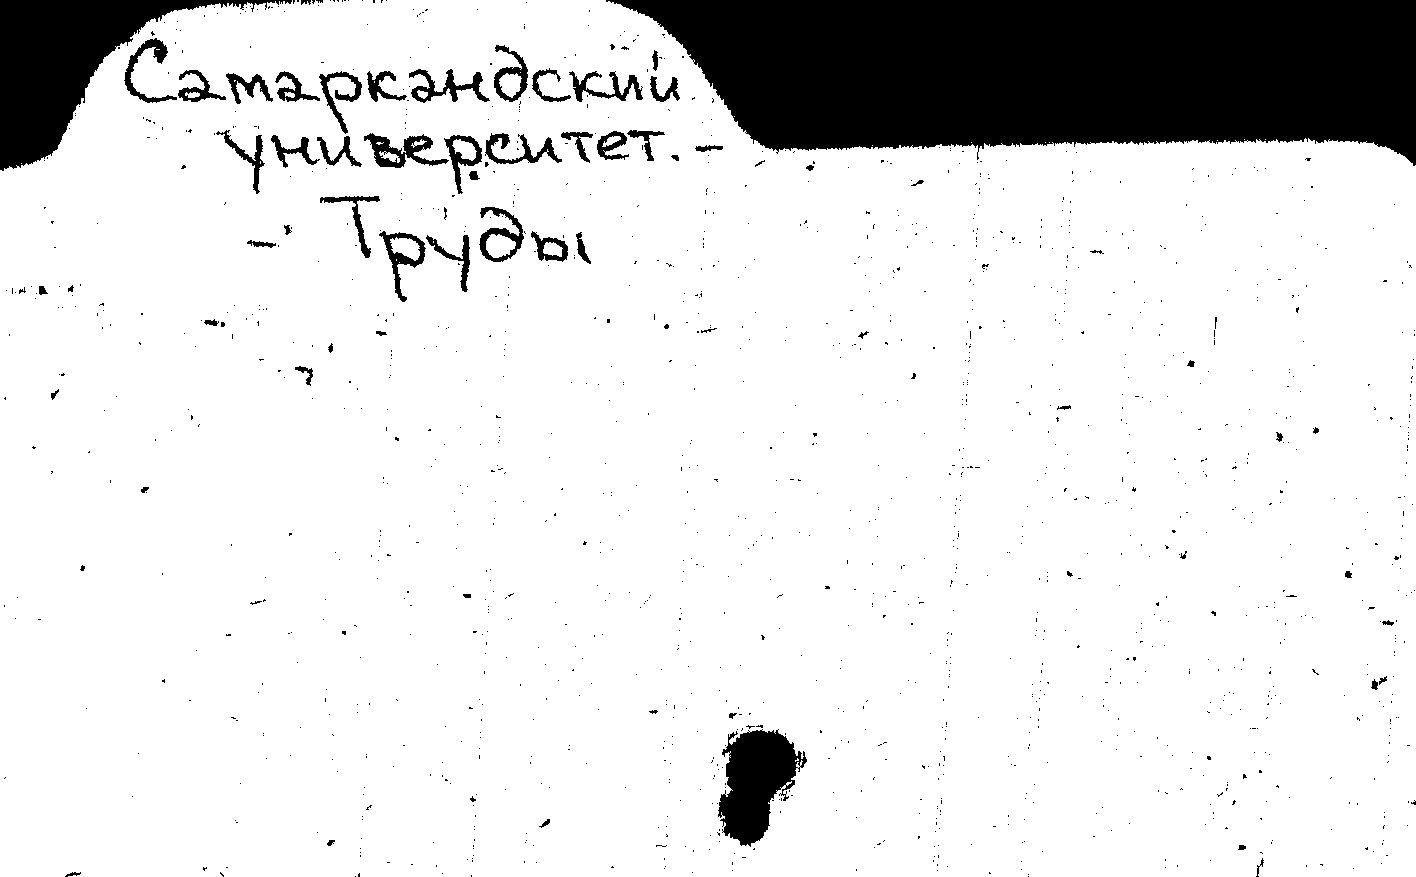 Самаркандский
университет. -
- Труды